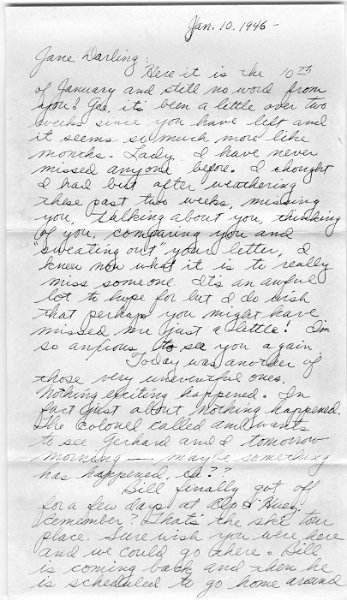 Jan. 10, 1946 -
Jane Darling:
Here it is the 10th
of January and still no word from
you! Gee, it's been a little over two
weeks since you have left and
it seems so much more like
months. Lady, I have never
missed anyone before. I thought
I had but after weathering
these past two weeks, missing
you, talking about you, thinking
of you, comparing you and
"sweating out" your letter, I
know now what it is to really
miss someone. It's an awful
lot to hope for but I do wish
that perhaps you might have
missed me just a little! I'm
so anxious to see you again.
Today was another of
those very uneventful ones.
Nothing exciting happened. In
fact just about nothing happened.
The Colonel called and wants
to see Gerhard and I tomorrow
morning — maybe something
has happened, eh??
Bill finally got off
for a few days at
Remember? That's the ski tour
place. Sure wish you were here
and we could go there. Bill
is coming back and then he
is scheduled to go home around